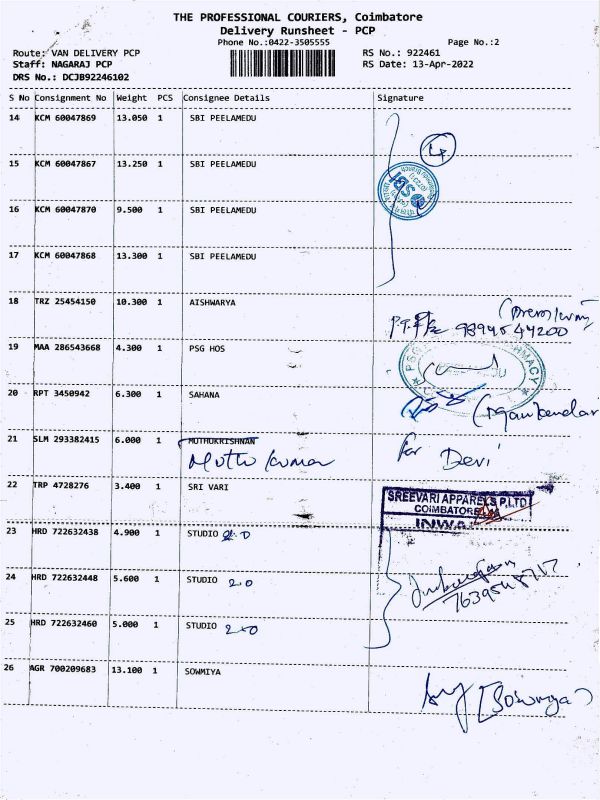 THE PROFESSIONAL COURIERS, Coimbatore
Delivery Runsheet - PCP
Phone No.:0422-3505555 Page No.:2
Route: VAN DELIVERY PCP RS No.: 922461
Staff: NAGARAJ PCP RS Date: 13-Apr-2022
DRS No.: DCJB92246102
S No Consignment No Weight PCS Consignee Details Signature
14 KCM 60047869 13.050 1 SBI PEELAMEDU
4
15 KCM 60047867 13.250 1 SBI PEELAMEDU
SBI
16 KCM 60047870 9.500 1 SBI PEELAMEDU
17 KCM 60047868 13.300 1 SBI PEELAMEDU
18 TRZ 25454150 10.300 1 AISHWARYA
9894544200
19 MAA 286543668 4.300 1 PSG HOS
20 RPT 3450942 6.300 1 SAHANA
21 SLM 293382415 6.000 1 MUTHUKRISHNAN
Muthu kumar for Devi
22 TRP 4728276 3.400 1 SRI VARI
SREEVARI APPARELS P LTD
COIMBATORE
INWA
23 HRD 722632438 4.900 1 STUDIO 2.0
24 HRD 722632448 5.600 1 STUDIO 2.0
25 HRD 722632460 5.000 1 STUDIO 2.0
26 AGR 700209683 13.100 1 SOWMIYA
(Sowmiya)